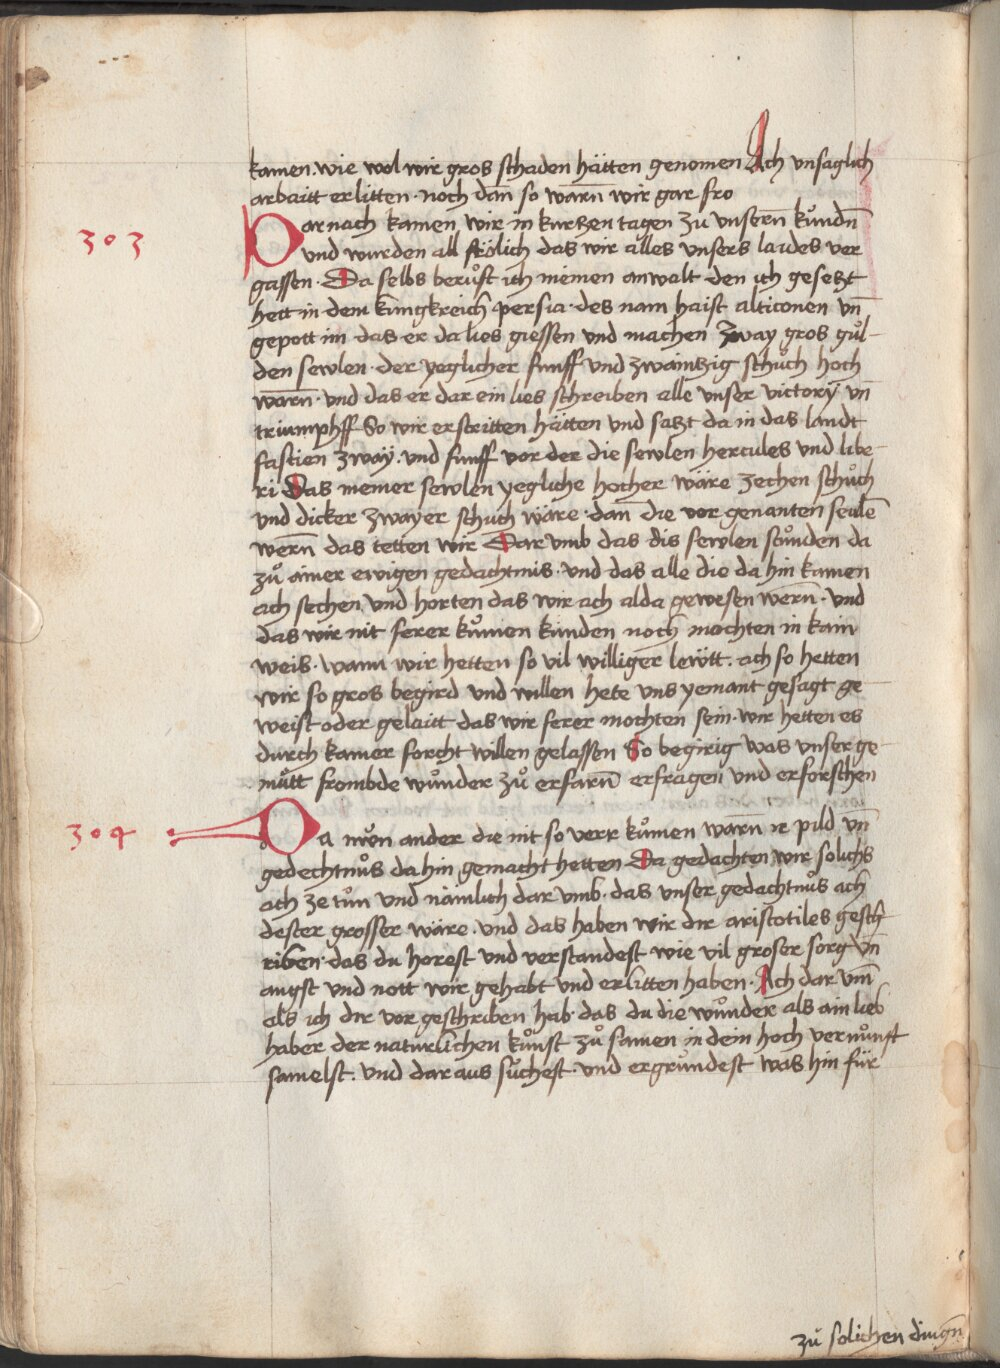 kamen. wie wol wir gros schaden hätten genomen Ach vnsaglich
arbaitt erlitten · noch dan̄ so warn̄ wir gar fro
303
Darnach kamen wir in kurtzen tagen zu vnsern̄ kůndn̄
vnd wurden all frölich das wir alles vnsers laides ver
gassen · Da selbs berůft ich meinen anwalt den ich gesetzt
hett in dem kungkreich persia · des nam haist alticonen vn̄
gepott im das er da lies giessen vnd machen zway gros gůl-
den sewlen · der yeglicher funff vnd zwaintzig schůch hoch
warn̄ · vnd das er dar ein lies schreiben alle vnser victorÿ vn̄
triumphff So wir erstritten hätten vnd satzt da in das landt
fastien zwaÿ. vnd funff vor der die sewlen hercules vnd libe-
ri Das meiner sewlen yegliche hocher wäre zechen schůch
vnd dicker zwayer schuch wäre · dan̄ die vor genanten seulē
wern̄ das tetten wir Dar vmb das dis sewlen stůnden da
zů ainer ewigen gedachtnis · vnd das alle die da hin kamen
ach sechen vnd horten das wir ach alda gewesen wern̄ · vnd
das wir nit ferer kůmen kunden noch mochten in kain
weis · wann wir hetten so vil williger lewtt. ach so hetten
wir so gros begird vnd willen hete vns yemant gesagt ge-
weist oder gelaitt das wir ferer mochten sein · wir hetten es
durch kainer forcht willen gelassen So begirig was vnser ge-
můtt frombde wůnder zů erfarn̄ erfragen vnd erforschen
304
Da nwn ander die nit so verr kůmen warn̄ ir pild vn̄
gedechtnůs da hin gemacht hetten Da gedachten wir solichs
ach ze tůn vnd nämlich dar vmb · das vnser gedachtnůs ach
dester grosser wäre · vnd das haben wir dir aristotiles gesch-
riben · das du horest vnd verstandest wie vil groser sorg vn̄
angst vnd nott wir gehabt vnd erlitten haben · Ach dar vm̄
als ich dir vor geschriben hab · das du die wůnder als ain lieb
haber der naturlichen kůnst zů samen in dein hoch vernůnft
samelst. vnd dar aus sůchest · vnd ergrundest was hin für
zů solichen dingn̄